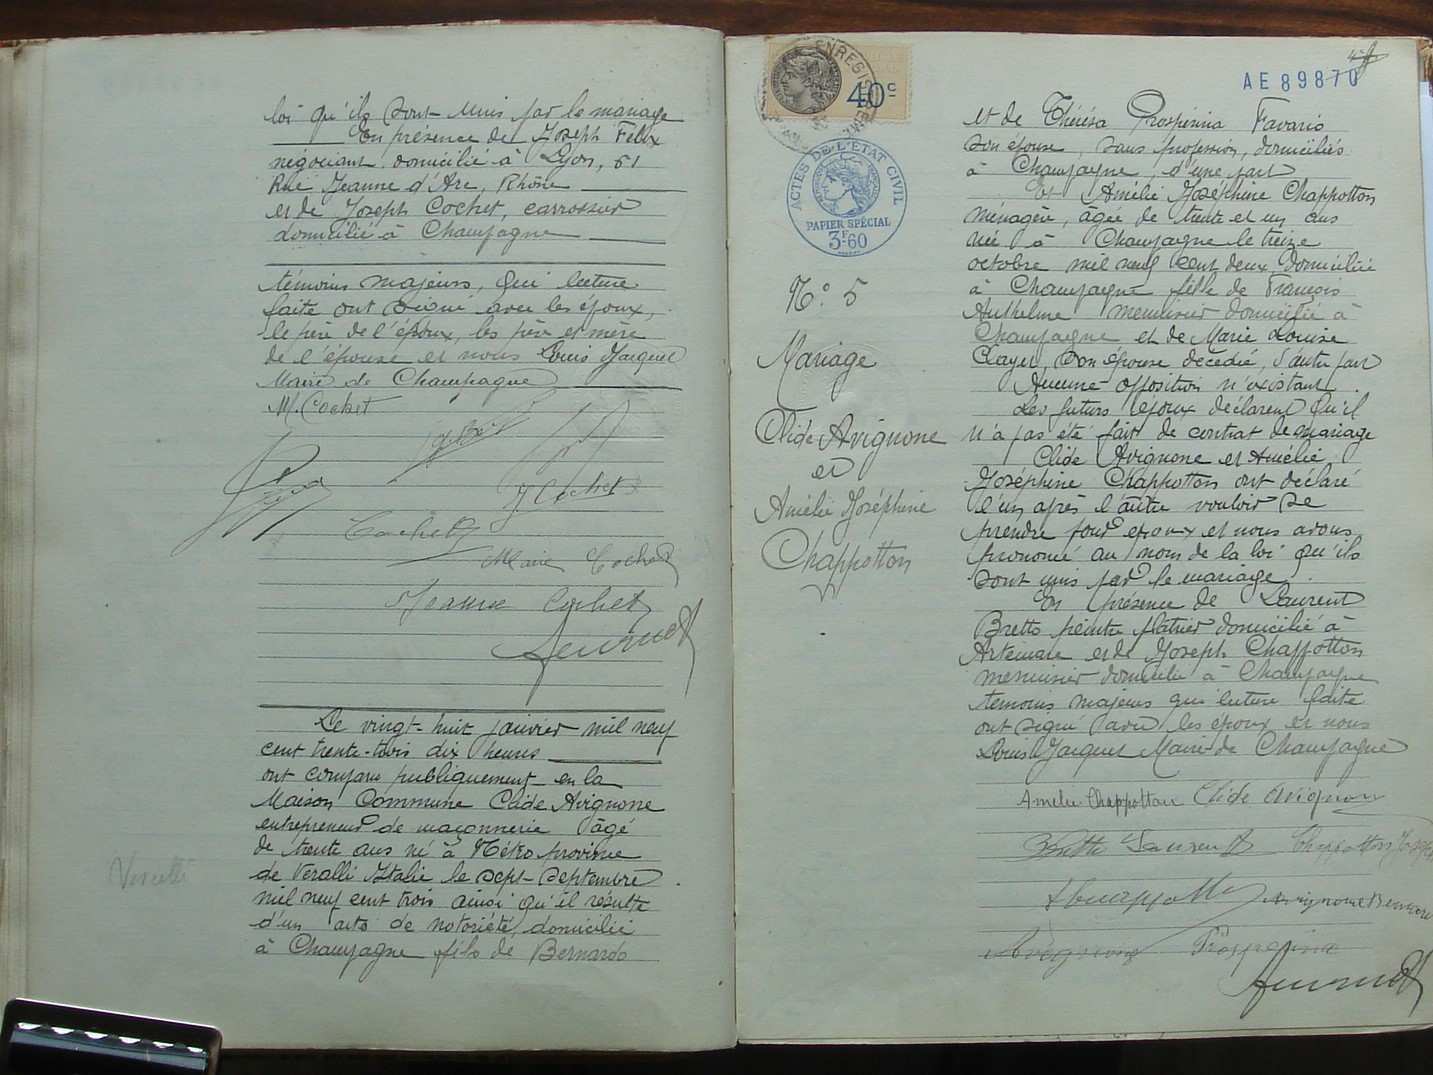 loi qu'ils sont unis par le mariage
En présence de Joseph Félix
négociant domicilié à Lyon, 51
Rue Jeanne d'Arc, Rhône
et de Joseph Cochet, carrossier
domicilié à Champagne
témoins majeurs, qui lecture
faite ont signé avec les époux,
le père de l'époux, les père et mère
de l'épouse et nous Louis Jacquet
Maire de Champagne
M. Cochet
J Cochet
Cochet
Marie Cochet
Jeanne Cochet
Le vingt-huit janvier mil neuf
cent trente-trois dix heures
ont comparu publiquement en la
Maison Commune Clide Avignone
entrepreneur de maçonnerie âgé
de trente ans né à province
de Veralli Italie le sept septembre
mil neuf cent trois ainsi qu'il résulte
d'un acte de notoriété, domicilié
à Champagne fils de Bernardo
Vercelli
40c
ACTES DE L'ÉTAT CIVIL
PAPIER SPÉCIAL
3F60
AE 89870
N° 5
Mariage
Clide Avignone
et
Amélie Joséphine
Chappotton
et de Thérésa Prospérinia Favario
son épouse, sans profession, domiciliés
à Champagne, d'une part
Et Amélie Joséphine Chappotton
ménagère, agée de trente et un ans
née à Champagne le treize
octobre mil neuf cent deux domiciliée
à Champagne fille de François
Anthelme menuisier domicilié à
Champagne et de Marie Louise
Clayet, son épouse décédée, d'autre part
Aucune opposition n'existant
Les futurs époux déclarent qu'il
n'a pas été fait de contrat de mariage
Clide Avignone et Amélie
Joséphine Chappotton ont déclaré
l'un après l'autre vouloir se
prendre pour époux et nous avons
prononcé au nom de la loi qu'ils
sont unis par le mariage
En présence de Laurent
Bretto peintre platrier domicilié à
Artemare et de Joseph Chappotton
menuisier domicilié à Champagne
témoins majeurs qui lecture faite
ont signé avec les époux et nous
Louis Jacquet Maire de Champagne
Amélie Chappotton Clide Avignone
Bretto Laurent Chappotton Joseph
Avignone Bernardo
Avignone Prosperina